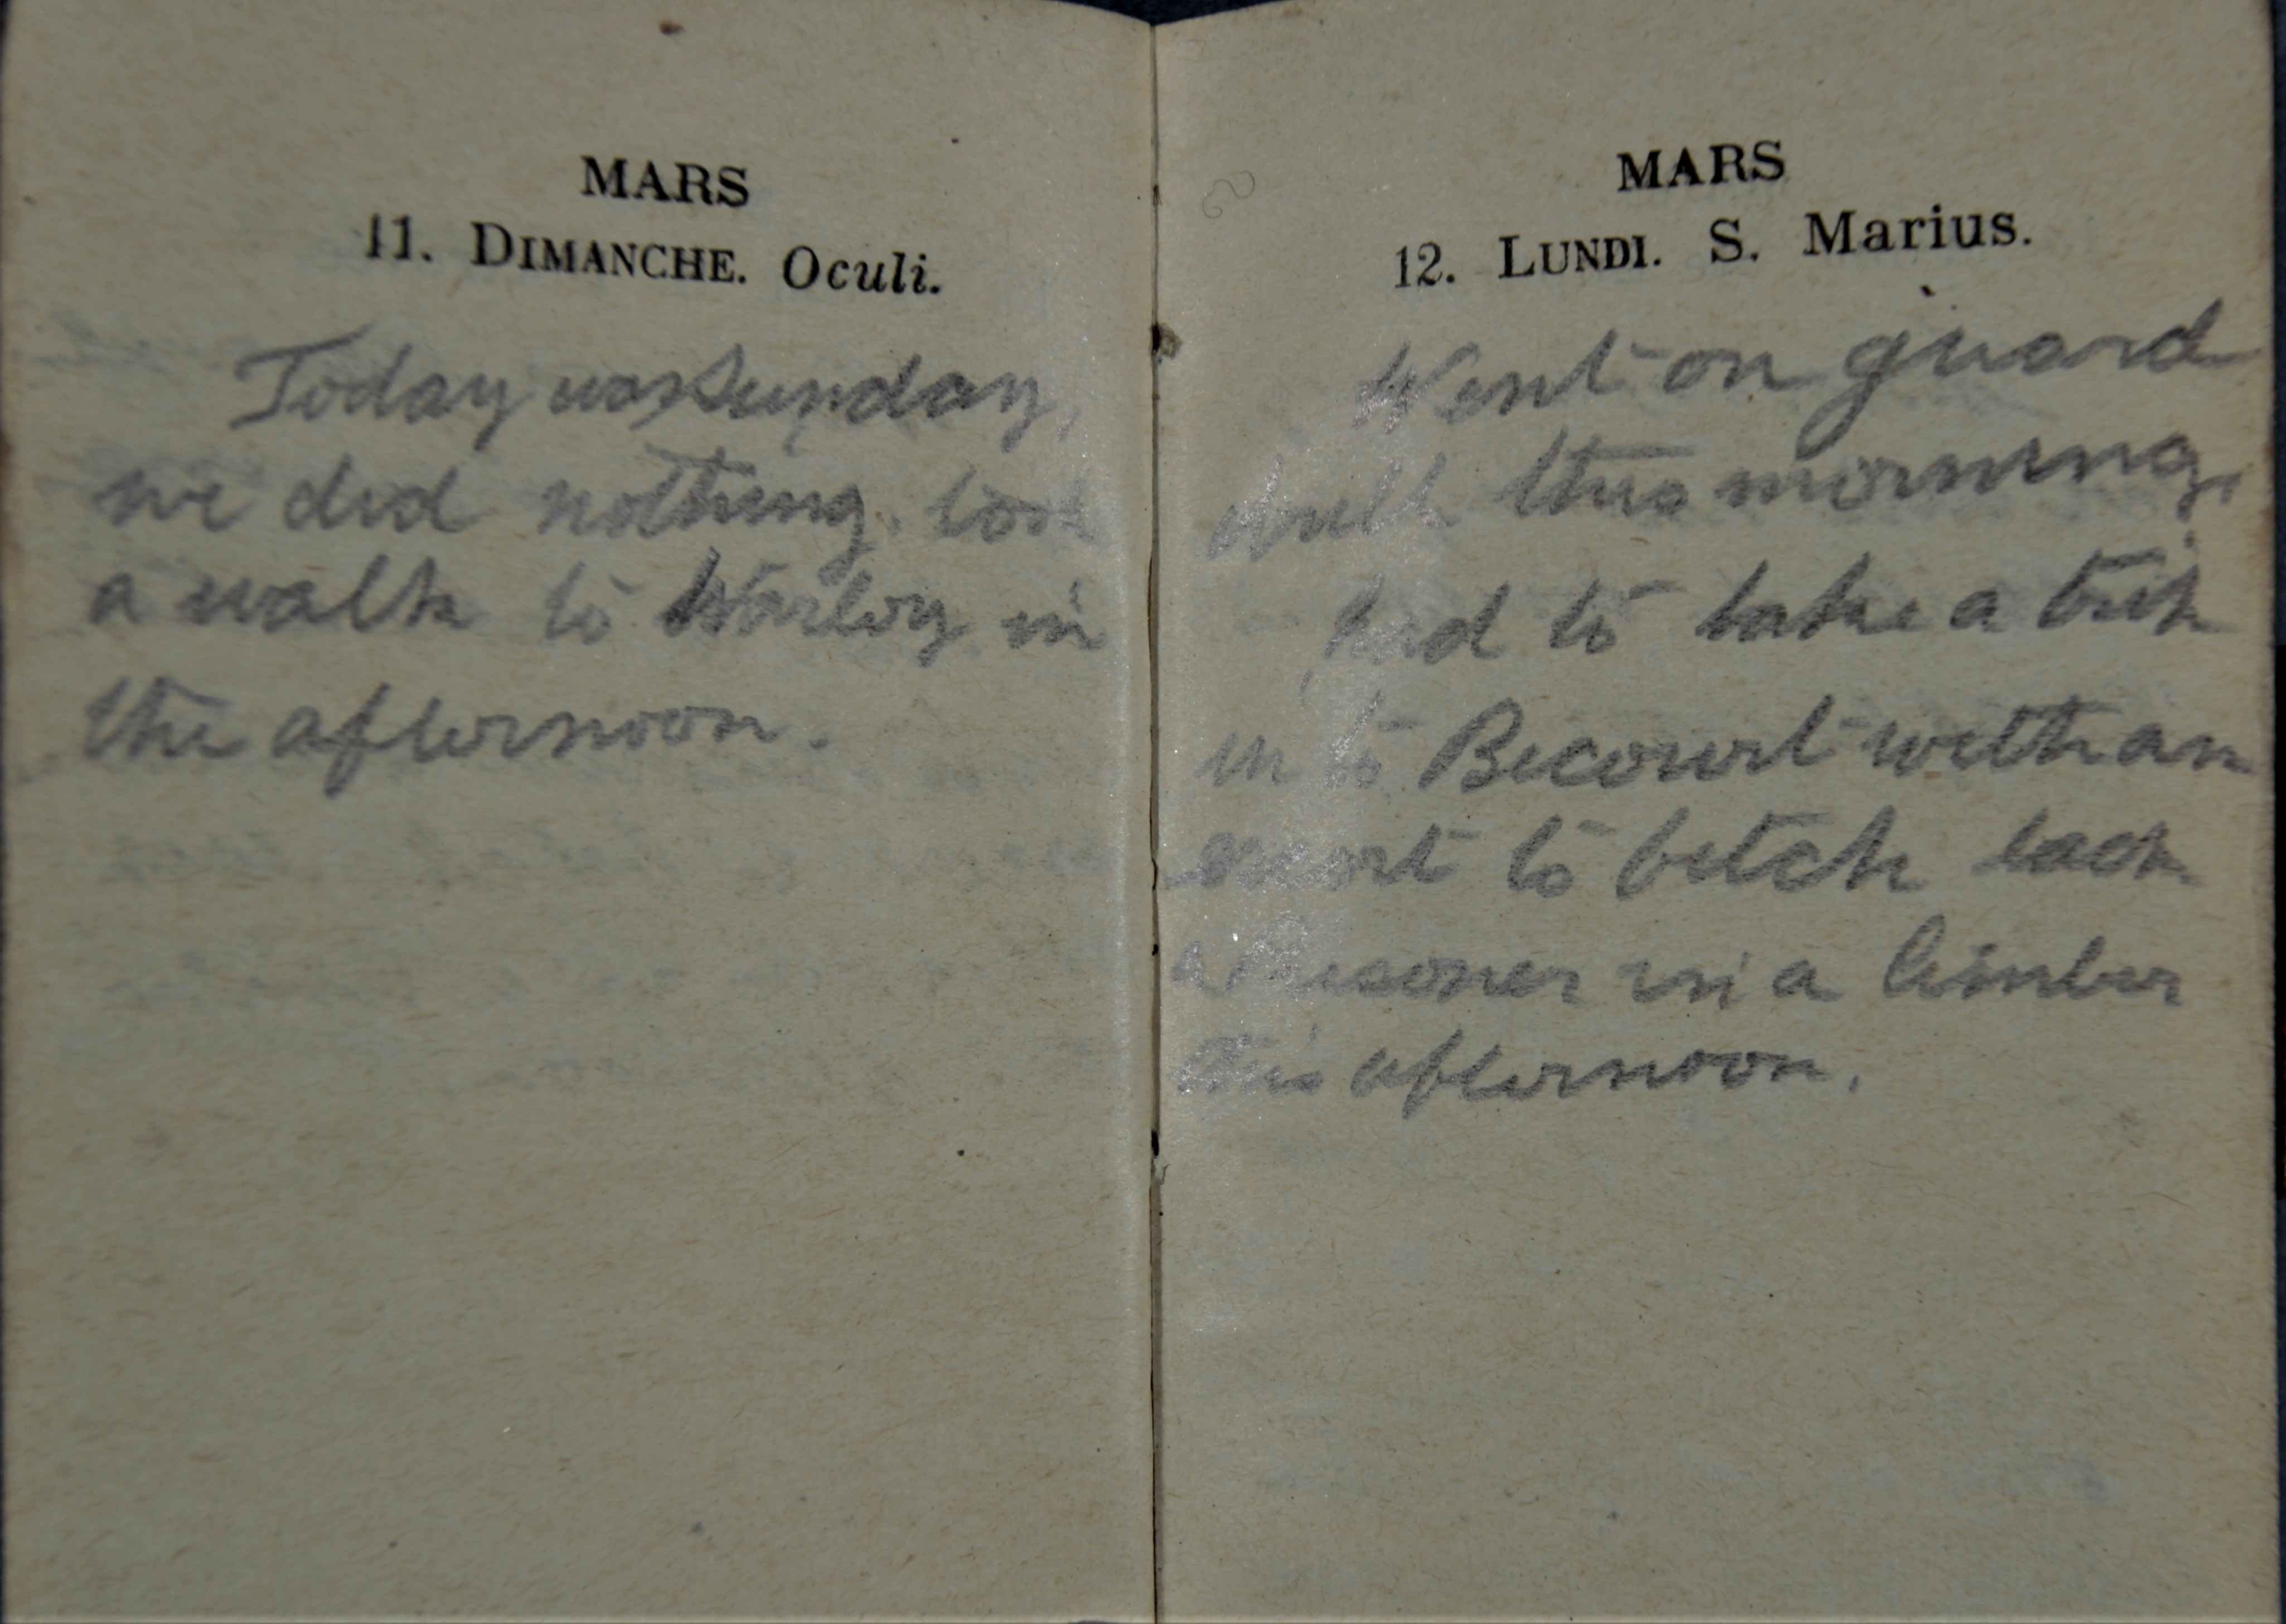 MARS
11. DIMANCHE. Oculi.
Today was Sunday,
we did nothing. took
a walk to Warloy in
the afternoon.
MARS
12. LUNDI. S. Marius.
Went on guard
drill this morning,
had to take a trip
in to Becourt with an
escort to fetch back
a Prisoner in a limber
this afternoon.